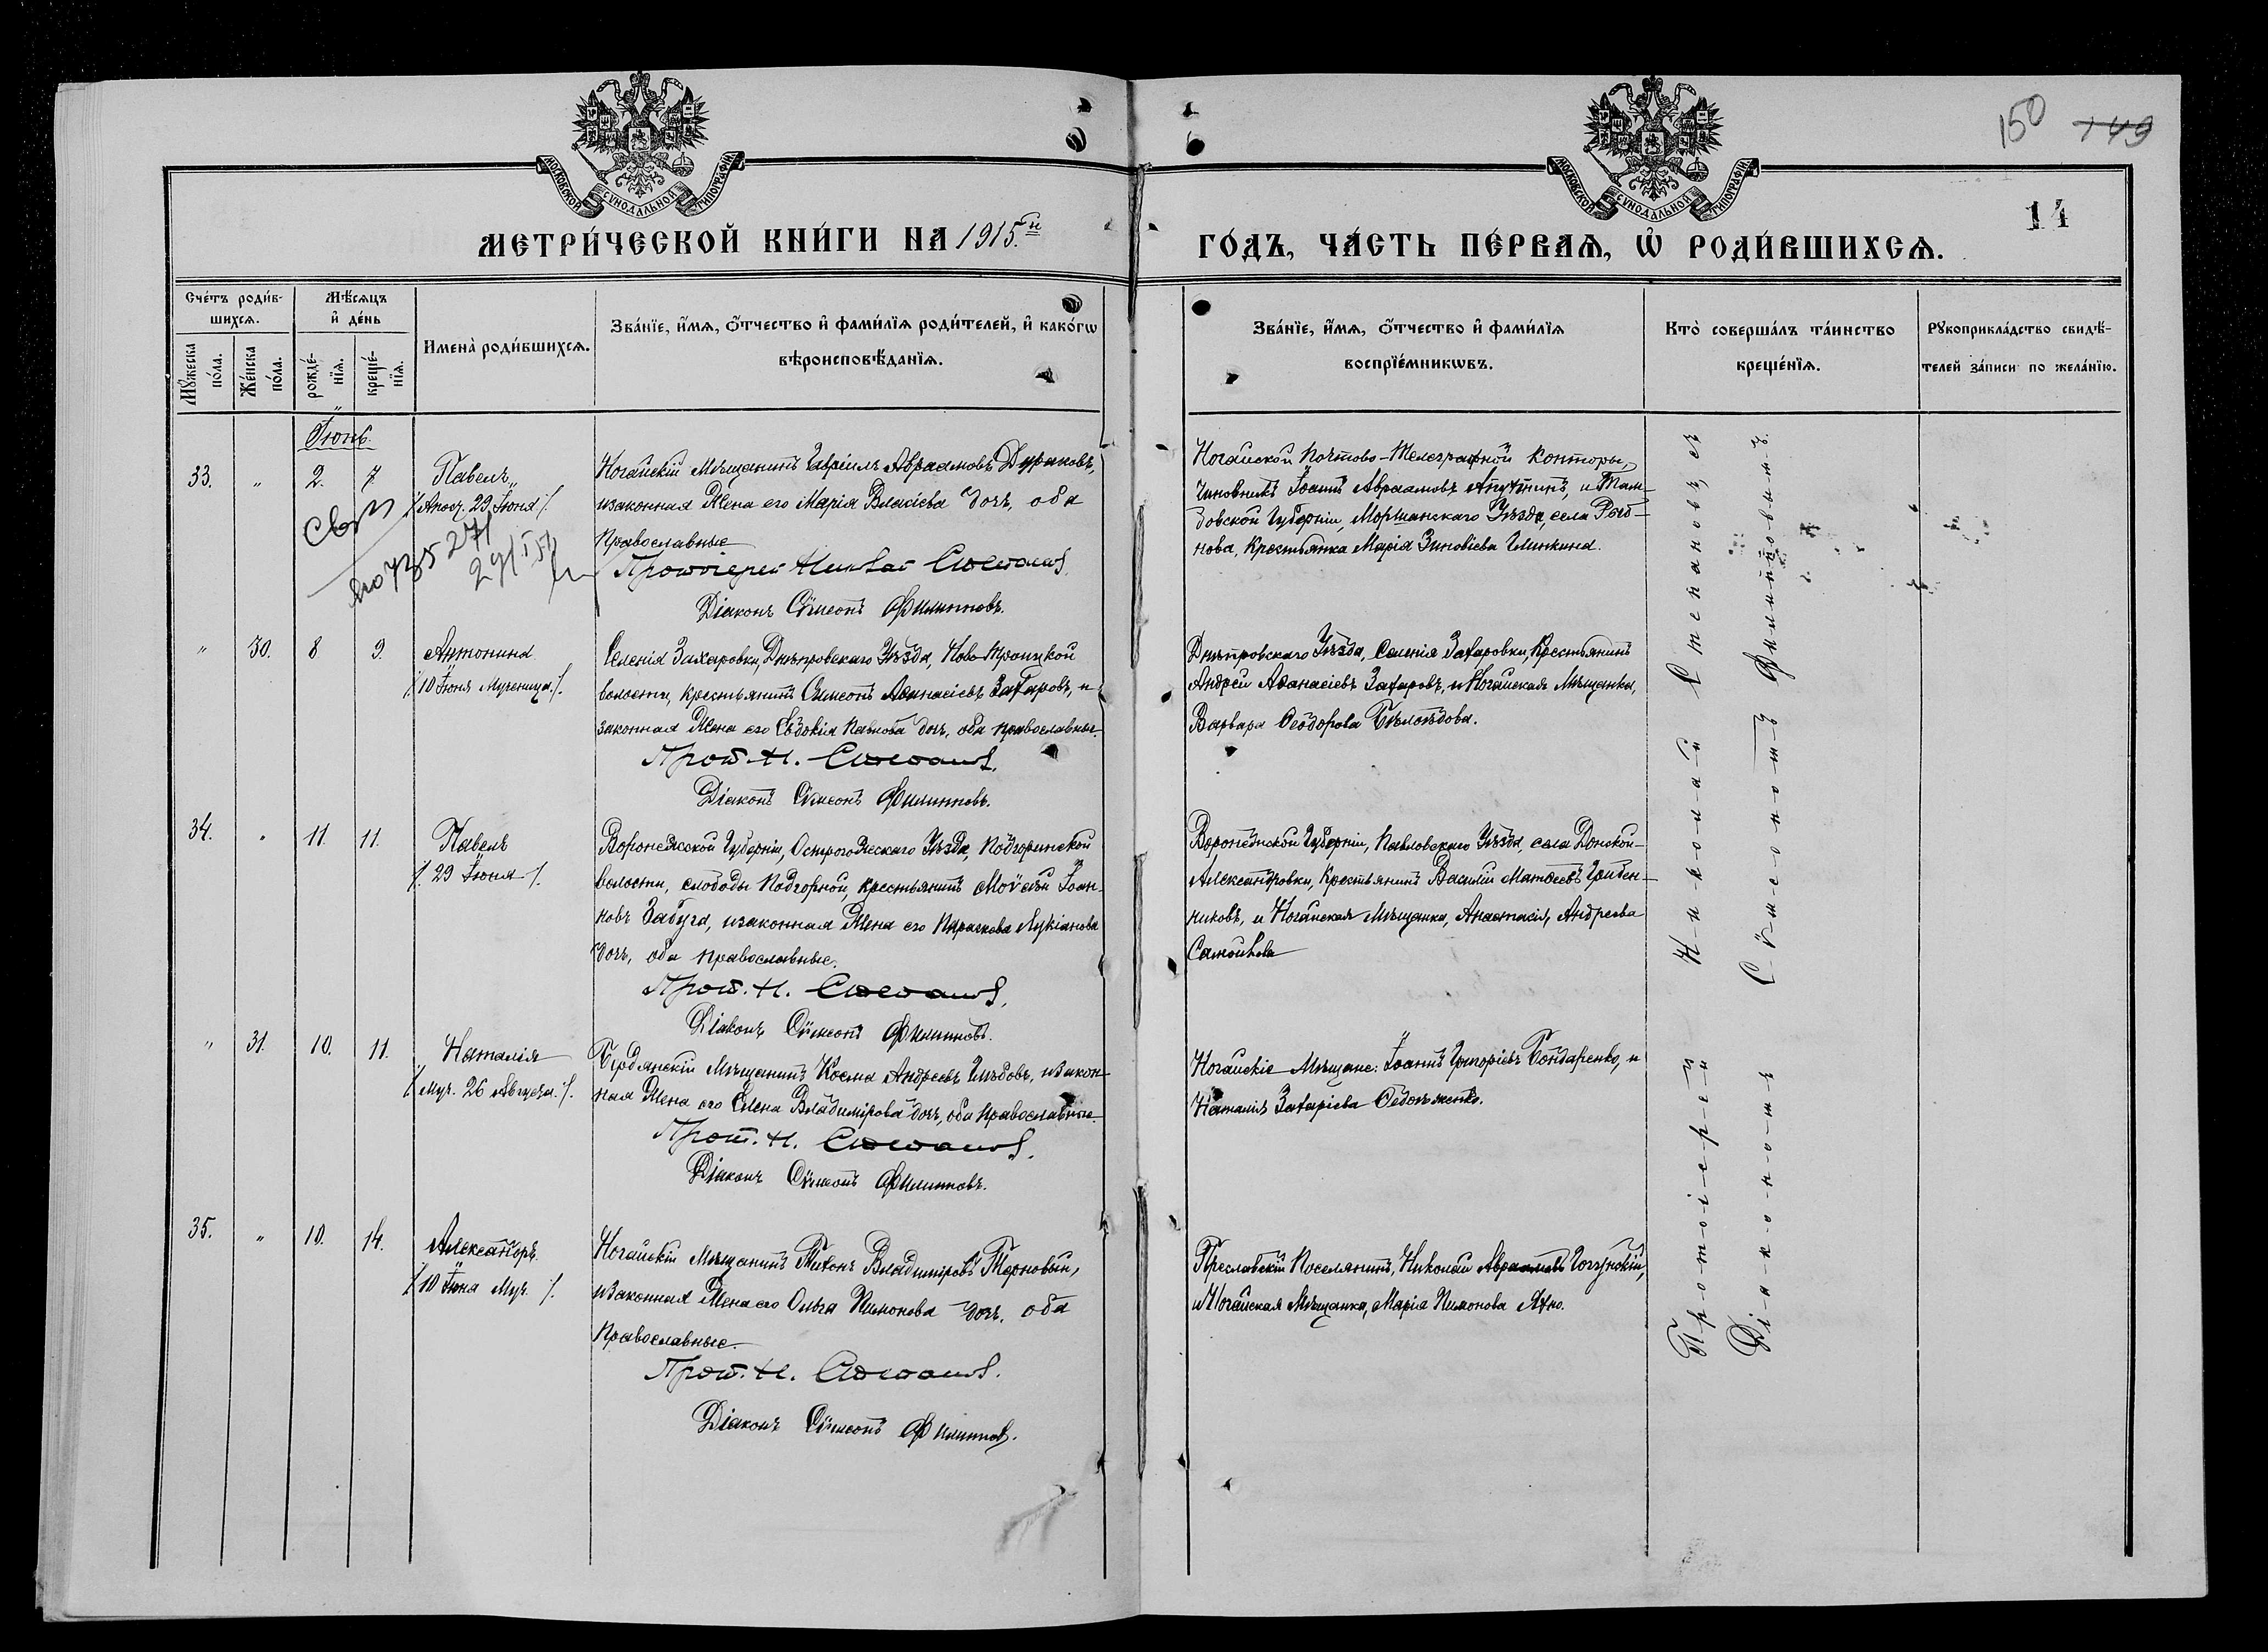 150 149
14
МОСКОВСКОЙ СѴНОДАЛЬНОЙ ТИПОГРАФІИ
МОСКОВСКОЙ СѴНОДАЛЬНОЙ ТИПОГРАФІИ
МЕТРИ́ЧЕСКОЙ КНИ́ГИ НА 1915.й
ГО́ДЪ, ЧА́СТЬ ПЕ́РВАѦ, Ѡ҆ РОДИ́ВШИХСѦ.
Сче́тъ роди́в-
шихсѧ.
Мꙋ́жеска по́ла.
Же́нска по́ла.
Мѣ́сѧцъ
и҆ де́нь
рожде́-
нїѧ.
креще́-
нїѧ.
Имена̀ роди́вшихсѧ.
Зва́нїе, и҆́мѧ, ѻ҆́тчество и҆ фами́лїѧ роди́телей, и҆ како́гѡ
вѣроисповѣ́данїѧ.
Зва́нїе, и҆́мѧ, ѻ҆́тчество и҆ фами́лїѧ
воспрїе́мникѡвъ.
Кто̀ соверша́лъ та́инство
креще́нїѧ.
Рꙋкоприкла́дство свидѣ́-
телей за́писи по жела́нїю.
Іюнь.
33. " 2. 7.
Павелъ
/. Апост. 29 Іюня ./
Ногайскій Мѣщанинъ Гавріилъ Авраамовъ Дураковъ,
и законная Жена его Марія Власіева дочь, оба
Православные
Протоіерей Николай Степановъ
Діаконъ Сѵмеонъ Филипповъ.
Ногайской Почтово-Телеграфной Конторы,
Чиновникъ Іоаннъ Авраамовъ Апухтинъ, и Там-
бовской Губерніи, Моршанскаго Уѣзда, села
нова, Крестьянка Марія Зиновіева
" 30. 8 9.
Антонина
/. 10 Іюня Мученица ./
Селенія Захаровки, Днѣпровскаго Уѣзда, Ново-Троицкой
волости, крестьянинъ Симеонъ Аѳанасіевъ Захаровъ, и
законная Жена его Евдокія Павлова дочь, оба православные.
Прот. Н. Степановъ.
Діаконъ Сѵмеонъ Филипповъ.
Днѣпровскаго Уѣзда, Селенія Захаровки, Крестьянинъ
Андрей Аѳанасіевъ Захаровъ, и Ногайская Мѣщанка,
Варвара Ѳеодорова Бѣлоѣдова.
34. " 11. 11.
Павелъ
/. 29 Іюня ./
Воронежской Губерніи, Острогожскаго Уѣзда, Подгоринской
волости, слободы Подгорной, крестьянинъ Моѵсей Іоан-
новъ Забуга, и законная Жена его Параскева Лукіанова
дочь, оба православные.
Прот. Н. Степановъ.
Діаконъ Сѵмеонъ Филипповъ.
Воронежской Губерніи, Павловскаго Уѣзда, села Донской-
Александровки, Крестьянинъ Василій Матѳеевъ Гребен-
никовъ, и Ногайская Мѣщанка, Анастасія Андреева
Самойлова
" 31. 10. 11.
Наталія
/. муч. 26 Августа ./
Бердянскій Мѣщанинъ Косма Андреевъ Глѣбовъ, и закон-
ная Жена его Елена Владимірова дочь, оба Православные.
Прот. Н. Степановъ.
Діаконъ Сѵмеонъ Филипповъ.
Ногайскіе Мѣщане: Іоаннъ Григоріевъ Бондаренко, и
Наталія Захаріева
35. " 10. 14.
Александръ
/. 10 Іюня Муч. ./
Ногайскій Мѣщанинъ Тихонъ Владиміровъ Терновый,
и законная Жена его Ольга Пимонова дочь, оба
Православные.
Прот. Н. Степановъ.
Діаконъ Сѵмеонъ Филипповъ.
Преславскій Поселянинъ, Николай Авраамовъ
и Ногайская Мѣщанка, Марія Пимонова Яхно.
Протоіерей Николай Степановъ съ
Діакономъ Сѵмеономъ Филипповымъ.